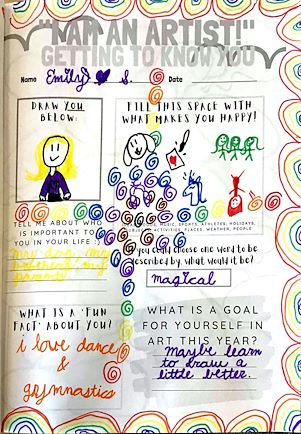 "I AM AN ARTIST!"
GETTING TO KNOW YOU
Name Emily S. Date
DRAW YOU
BELOW:
FILL THIS SPACE WITH
WHAT MAKES YOU HAPPY!
MUSIC, SPORTS, ATHLETES, HOLIDAYS,
ACTIVITIES, PLACES, WEATHER, PEOPLE
TELL ME ABOUT WHO
IS IMPORTANT TO
YOU IN YOUR LIFE :)
my dog, my
my
friends
If you could choose one word to be
described by, what would it be?
magical
WHAT IS A 'FUN
FACT' ABOUT YOU?
i love dance
&
gymnastics
WHAT IS A GOAL
FOR YOURSELF IN
ART THIS YEAR?
Maybe learn
to draw a
little better.